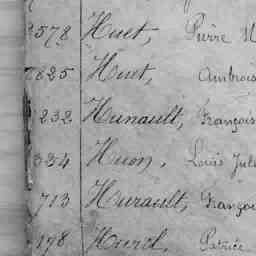 578 Huet, Pierre
825 Huet, Ambrois
232 Hunault, François
334 Huon, Louis Jul
713 Hurault, Franço
198 Hurel, Patrice